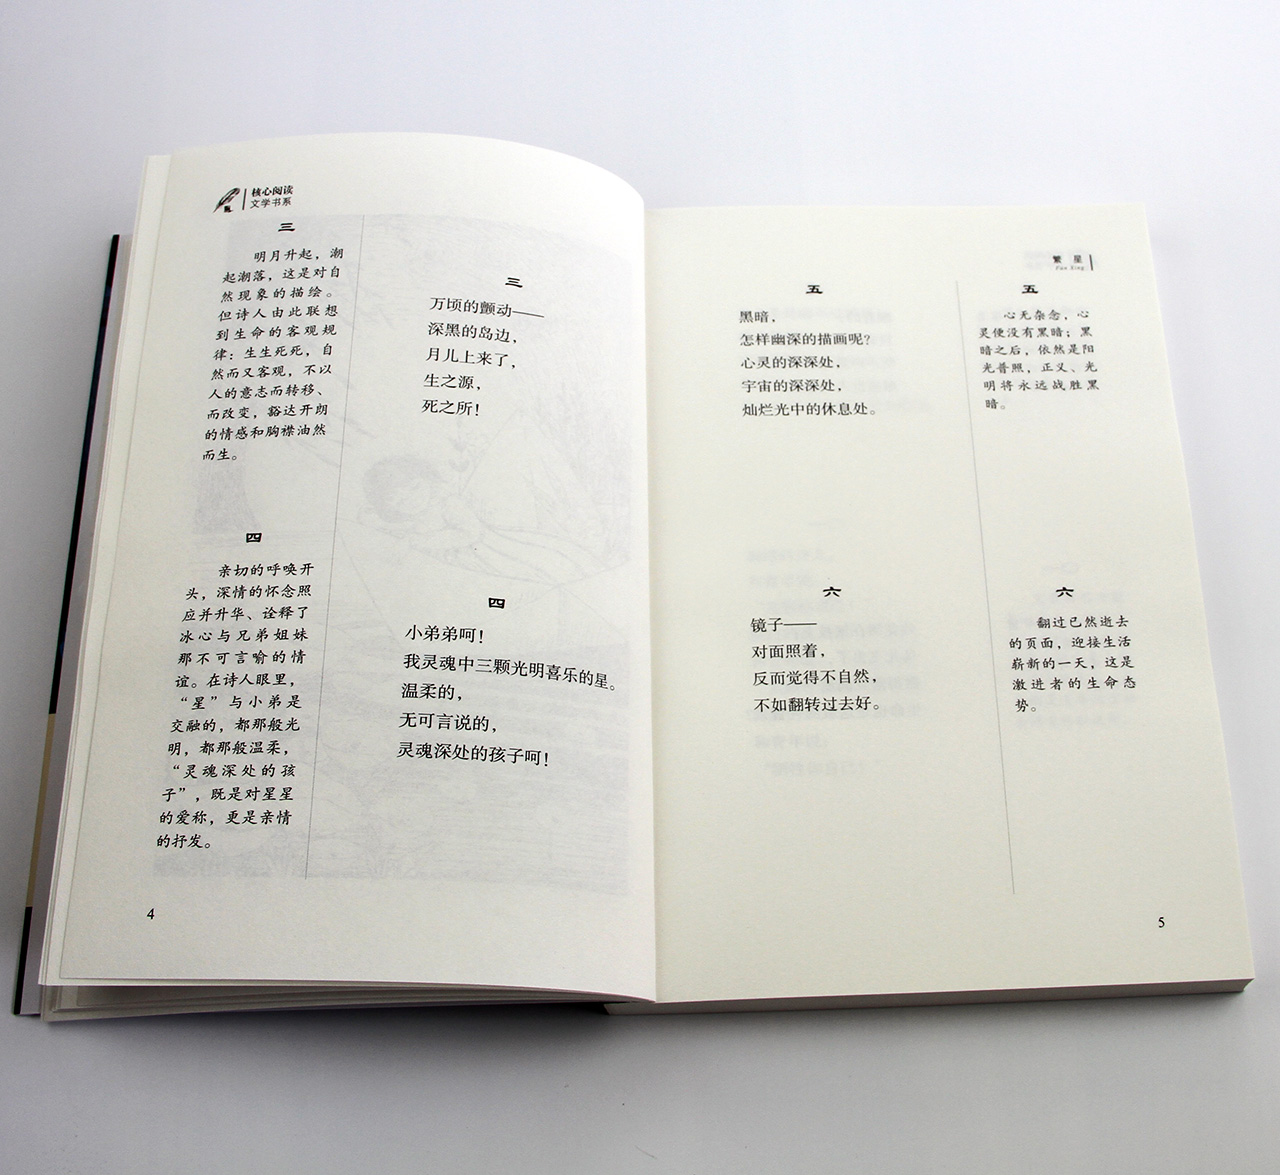 核心阅读
文学书系
三
明月升起，潮
起潮落，这是对自
然现象的描绘。
但诗人由此联想
到生命的客观规
律：生生死死，自
然而又客观，不以
人的意志而转移、
而改变，豁达开朗
的情感和胸襟油然
而生。
四
亲切的呼唤开
头，深情的怀念照
应并升华、诠释了
冰心与兄弟姐妹
那不可言喻的情
谊。在诗人眼里，
“星”与小弟是
交融的，都那般光
明，都那般温柔，
“灵魂深处的孩
子”，既是对星星
的爱称，更是亲情
的抒发。
三
万顷的颤动——
深黑的岛边，
月儿上来了，
生之源，
死之所！
四
小弟弟呵！
我灵魂中三颗光明喜乐的星。
温柔的，
无可言说的，
灵魂深处的孩子呵！
4
繁 星
Fan Xing
五
黑暗，
怎样幽深的描画呢？
心灵的深深处，
宇宙的深深处，
灿烂光中的休息处。
六
镜子——
对面照着，
反而觉得不自然，
不如翻转过去好。
五
心无杂念，心
灵便没有黑暗；黑
暗之后，依然是阳
光普照，正义、光
明将永远战胜黑
暗。
六
翻过已然逝去
的页面，迎接生活
崭新的一天，这是
激进者的生命态
势。
5